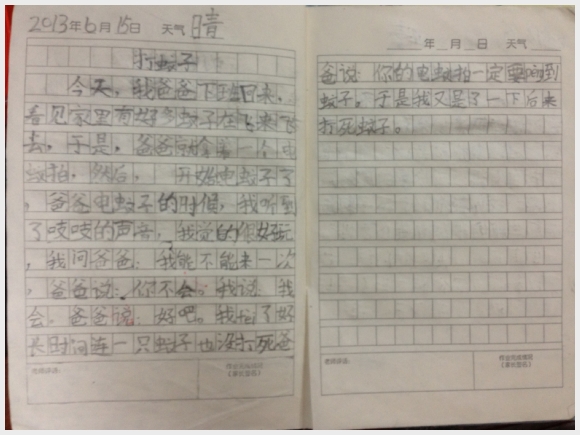 2013年6月15日 天气 晴
打蚊子
今天，我爸爸下班回来，
看见家里有好多蚊子在飞来飞
去，于是，爸爸就拿一个电
蚊拍，然后，开始电蚊子了
，爸爸电蚊子的时候，我听到
了吱吱的声音，我觉的很好玩
，我问爸爸：我能不能来一次
，爸爸说：你不会。我说：我
会，爸爸说：好吧。我拍了好
长时间连一只蚊子也没打死爸
老师评语：
作业完成情况
（家长签名）
年 月 日 天气
爸说：你的电蚊拍一定要响到
蚊子。于是我又是了一下后来
打死蚊子。
老师评语：
作业完成情况
（家长签名）